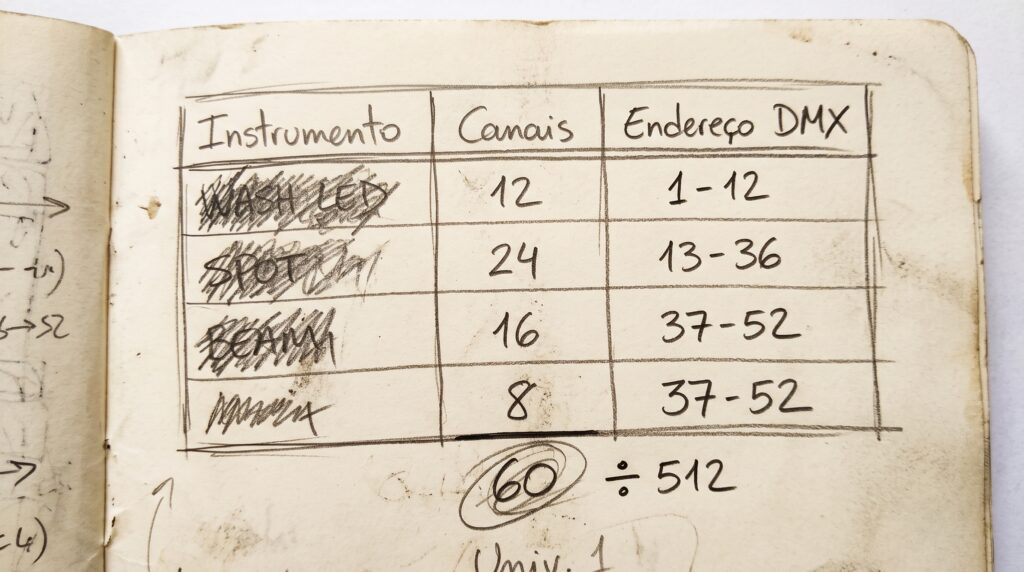 Instrumento Canais Endereço DMX
WASH LED 12 1-12
SPOT 24 13-36
BEAM 16 37-52
8 37-52
60 ÷ 512
Univ. 1